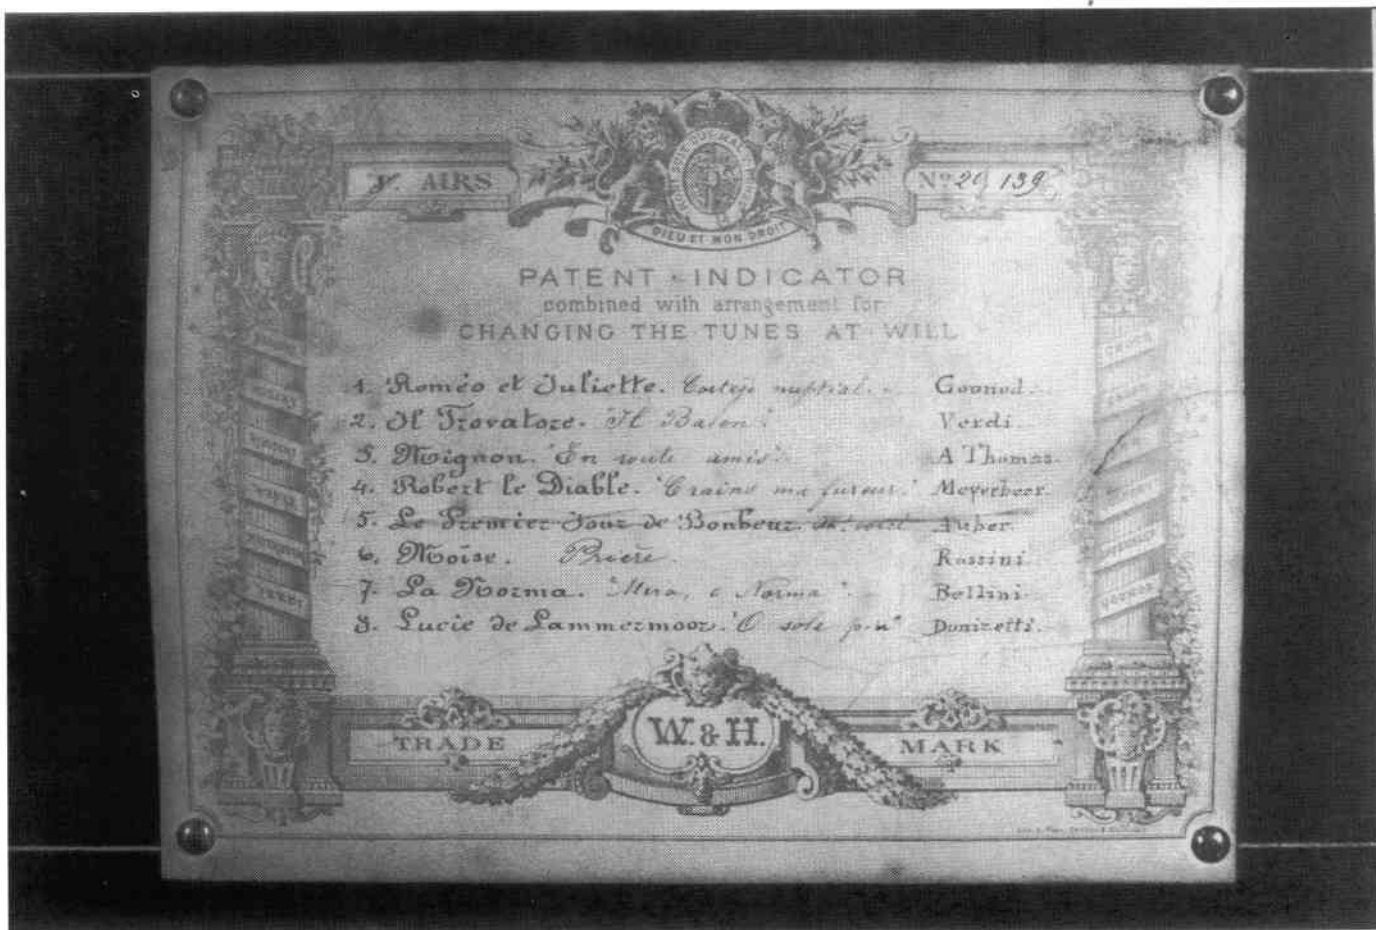 AIRS
Nº 20,139
DIEU ET MON DROIT
PATENT - INDICATOR
combined with arrangement for
CHANGING THE TUNES AT WILL
1. Roméo et Juliette. Cortège nuptial. Gounod.
2. Il Trovatore. "Il Balen". Verdi.
3. Mignon. "En route amis". A Thomas.
4. Robert le Diable. "Crains ma fureur." Meyerbeer.
5. Le Premier Jour de Bonheur. Auber.
6. Moïse. Prière. Rossini.
7. La Norma. "Mira, o Norma". Bellini.
8. Lucie de Lammermoor. "O sole Donizetti.
VERDI
GOUNOD
TRADE W. & H. MARK